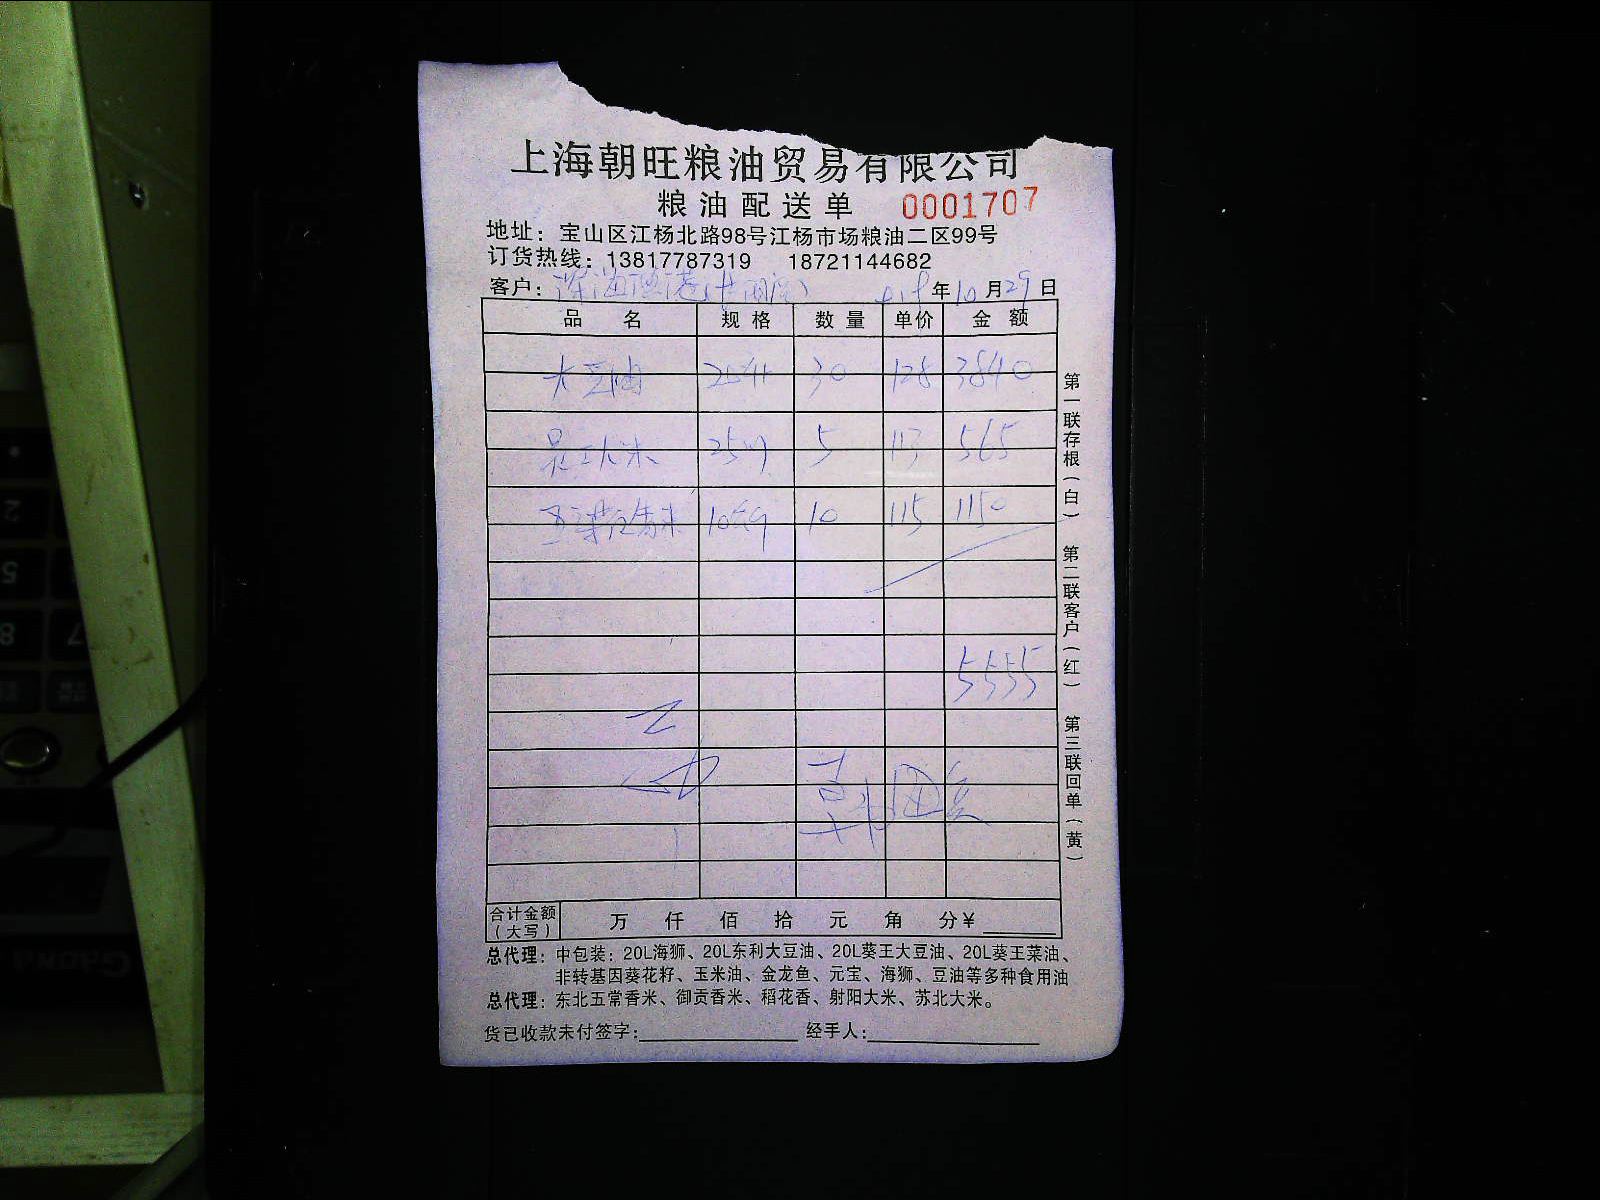 上海朝旺粮油贸易有限公司
粮油配送单 0001707
地址：宝山区江杨北路98号江杨市场粮油二区99号
订货热线：13817787319 18721144682
客户： 年10月29日
品名 规格 数量 单价 金额
大豆油 20升 30 128 3840
大米 25 5 113 565
米 10 10 115 1150
5555
合计金额（大写） 万 仟 佰 拾 元 角 分¥
总代理：中包装：20L海狮、20L东利大豆油、20L葵王大豆油、20L葵王菜油、
非转基因葵花籽、玉米油、金龙鱼、元宝、海狮、豆油等多种食用油
总代理：东北五常香米、御贡香米、稻花香、射阳大米、苏北大米。
货已收款未付签字： 经手人：
第一联存根（白）
第二联客户（红）
第三联回单（黄）